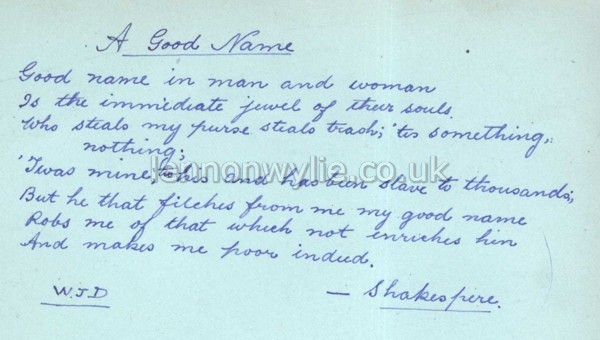 A Good Name
Good name in man and woman
Is the immediate jewel of their souls.
Who steals my purse steals trash; 'tis something,
nothing;
'Twas mine, 'tis his and has been slave to thousands;
But he that filches from me my good name
Robs me of that which not enriches him
And makes me poor indeed.
W.J.D
— Shakespere.
lennonwylie.co.uk